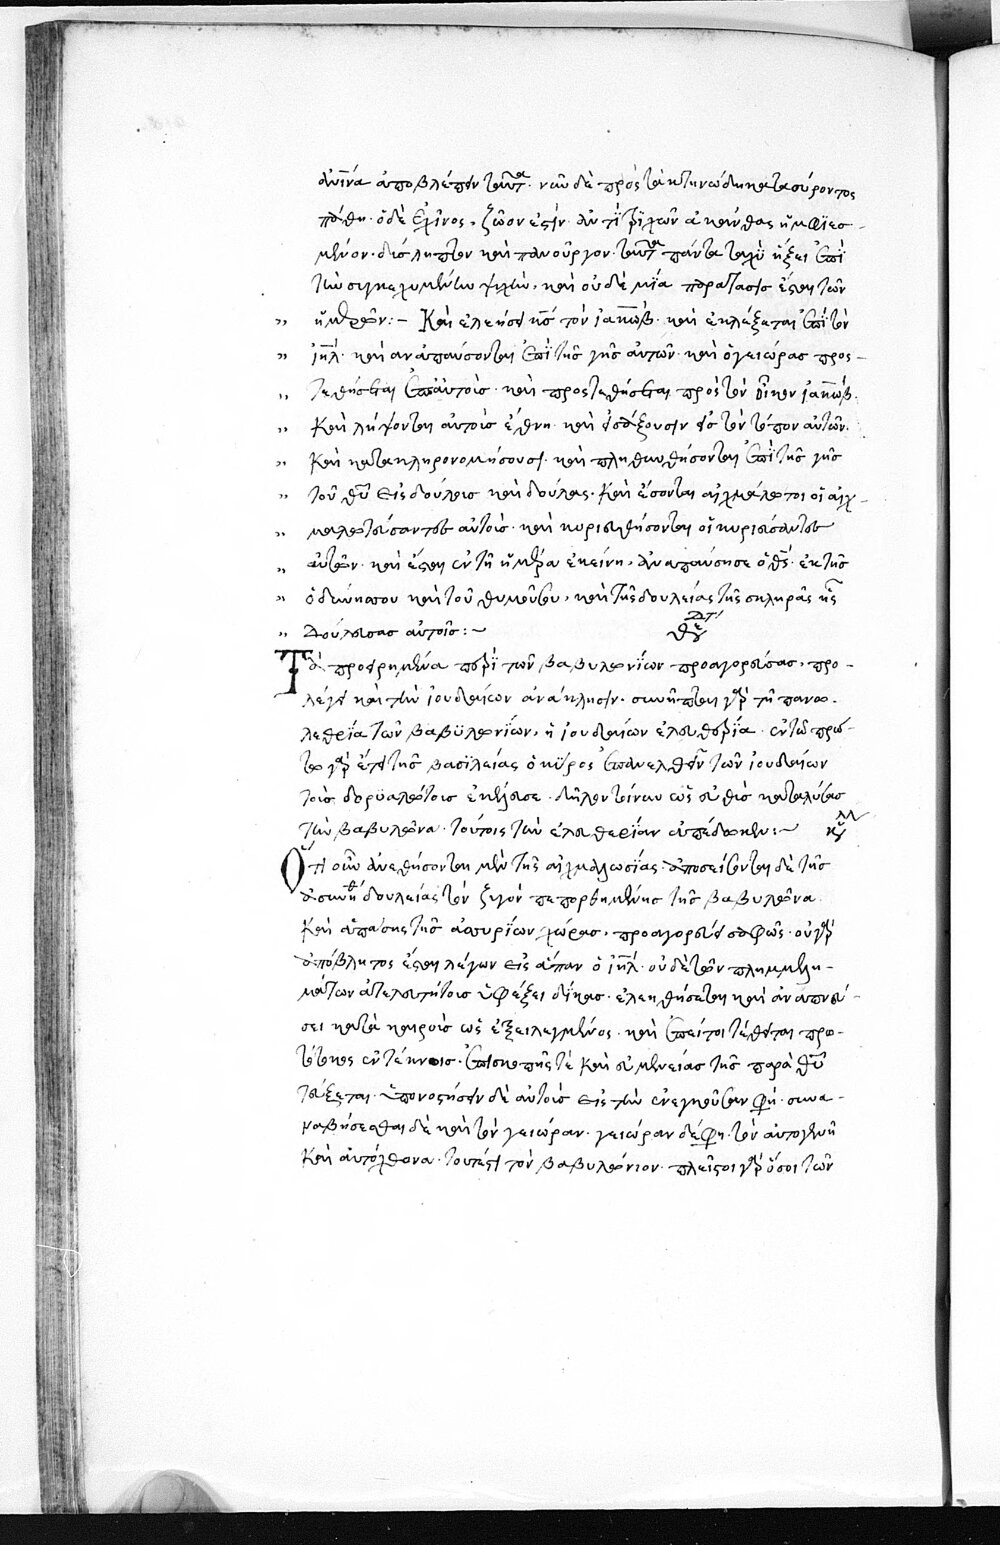 δυϊνά ἀποβλέπειν ταῦτα· νῦν δὲ πρὸς τὰ κτηνώδη κατασύροντος
πάθη· ὁ δὲ ἐχῖνος, ζῶον ἐστὶν ἀντὶ τριχῶν ἀκάνθας ἠμφιεσ-
μένον· δύσληπτον καὶ πανοῦργον· ταῦτα πάντα ταχὺ ἥξει ἐπὶ
τὴν συγκεχυμένην ψυχὴν, καὶ οὐδὲ μία παράτασις ἔσται τῶν
„ ἡμερῶν:– Καὶ ἐλεήσει κς τὸν ἰακὼβ· καὶ ἐκλέξεται ἔτι τὸν
„ ἰηλ· καὶ ἀναπαύσονται ἐπὶ τῆς γῆς αὐτῶν· καὶ ὁ γειώρας προς-
„ τεθήσεται ἐπ' αὐτοῖς· καὶ προστεθήσεται πρὸς τὸν οἶκον ἰακώβ.
„ Καὶ λήψονται αὐτοὺς ἔθνη· καὶ εἰσάξουσιν εἰς τὸν τόπον αὐτῶν.
„ Καὶ κατακληρονομήσουσι· καὶ πληθυνθήσονται ἐπὶ τῆς γῆς
„ τοῦ θυ εἰς δούλους καὶ δούλας· Καὶ ἔσονται αἰχμάλωτοι οἱ αἰχ-
„ μαλωτεύσαντες αὐτοὺς· καὶ κυριευθήσονται οἱ κυριεύσαντες
„ αὐτῶν· καὶ ἔσται ἐν τῇ ἡμέρα ἐκείνη, ἀναπαύσησε ὁ θς· ἐκ τῆς
„ ὀδύνης σου καὶ τοῦ θυμοῦ σου, καὶ τῆς δουλείας τῆς σκληρᾶς ἧς
„ Δούλευσας αὐτοῖς:~
Τὰ προειρημένα περὶ τῶν βαβυλωνίων προαγορεύσας, προ-
λέγει καὶ τὴν ἰουδαίων ἀνάκλησιν· συνῆπται γὰρ τῇ πανω-
λεθρία τῶν βαβυλωνίων, ἡ ἰουδαίων ἐλευθερία· ἐν τῷ πρώ-
τω γὰρ ἔτει τῆς βασιλείας ὁ κῦρος ἐπανελθεῖν τῶν ἰουδαίων
τοὺς δορυαλώτους ἐκέλευσε· δῆλον τοίνυν ὡς εὐθὺς καταλύσας
τὴν βαβυλῶνα· τούτοις τὴν ἐλευθερίαν ἀπέδωκεν:~
Ὅτι οὖν ἀνεθήσονται μὲν τῆς αἰχμαλωσίας· ἀποσείονται δὲ τῆς
ἀσυνήθ δουλείας τὸν ζυγὸν πεπορθημένης τῆς βαβυλῶνα
Καὶ ἁπάσης τῆς ἀσσυρίων χώρας, προαγορεύει σαφῶς· οὐ γὰρ
ἀπόβλητος ἔσται λέγων εἰς ἅπαν ὁ ἰηλ· οὐδὲ τῶν πλημμελη-
μάτων ἀτελευτήτους ὑφέξει δίκας· ἐλεηθήσεται καὶ ἀναπνεύ-
σει κατὰ καιροὺς ὡς ἐξειλεγμένος· καὶ ἐπείτοι τέθειται πρω-
τότοκος ἐν τέκνοις· ἐπισκοπῆς τὲ καὶ εὐμενείας τῆς παρὰ θυ
τεύξεται· ὑπονοστήσειν δὲ αὐτοὺς εἰς τὴν ἐνεγκοῦσαν φη· συνα-
ναβήσεσθαι δὲ καὶ τὸν γειώραν· γειώραν δέ φη· τὸν αὐτογενῆ
Καὶ αὐτόχθονα· τουτέστι τὸν βαβυλώνιον· πλεῖστοι γὰρ ὅσοι τῶν